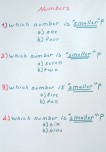 Numbers
1) Which number is "smaller"?
a) one
b) four
2) Which number is "smaller"?
a) seven
b) two
3) Which number is "smaller"?
a) five
b) ten
4) Which number is "smaller"?
a) six
b) nine